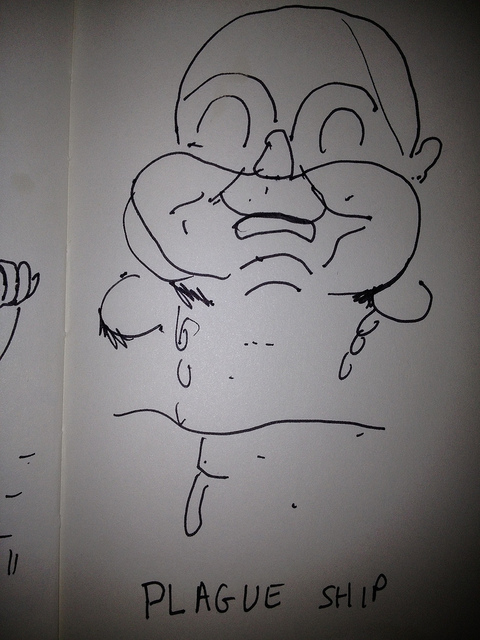 PLAGUE SHIP